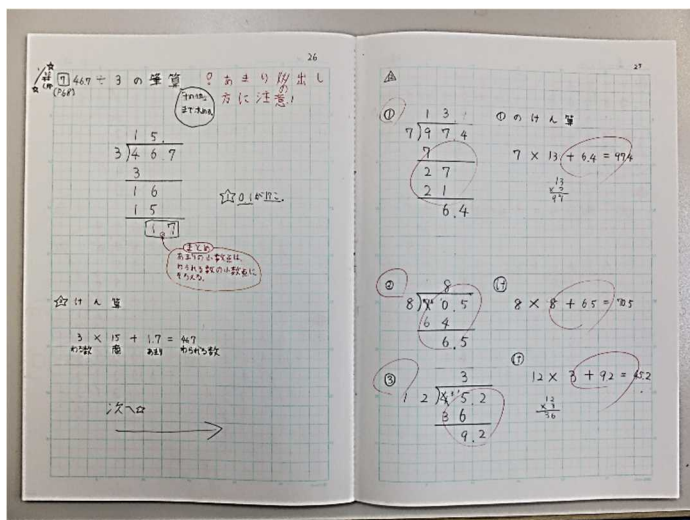 26
7 46.7 ÷ 3 の筆算
(P68)
? あまりの出し
方に注意!
一の位
まで求める
15.
3)46.7
3
16
15
1.7
☆0.1が17こ
まとめ
あまりの小数点は、
わられる数の小数点に
そろえる。
☆けん算
3 × 15 + 1.7 = 46.7
わる数 商 あまり わられる数
次へ☆
27
①
13.
7)97.4
7
27
21
6.4
①のけん算
7 × 13 + 6.4 = 97.4
13
×7
91
②
8
8)70.5
64
6.5
け
8 × 8 + 6.5 = 70.5
③
3
12)45.2
36
9.2
け
12 × 3 + 9.2 = 45.2
12
×3
36